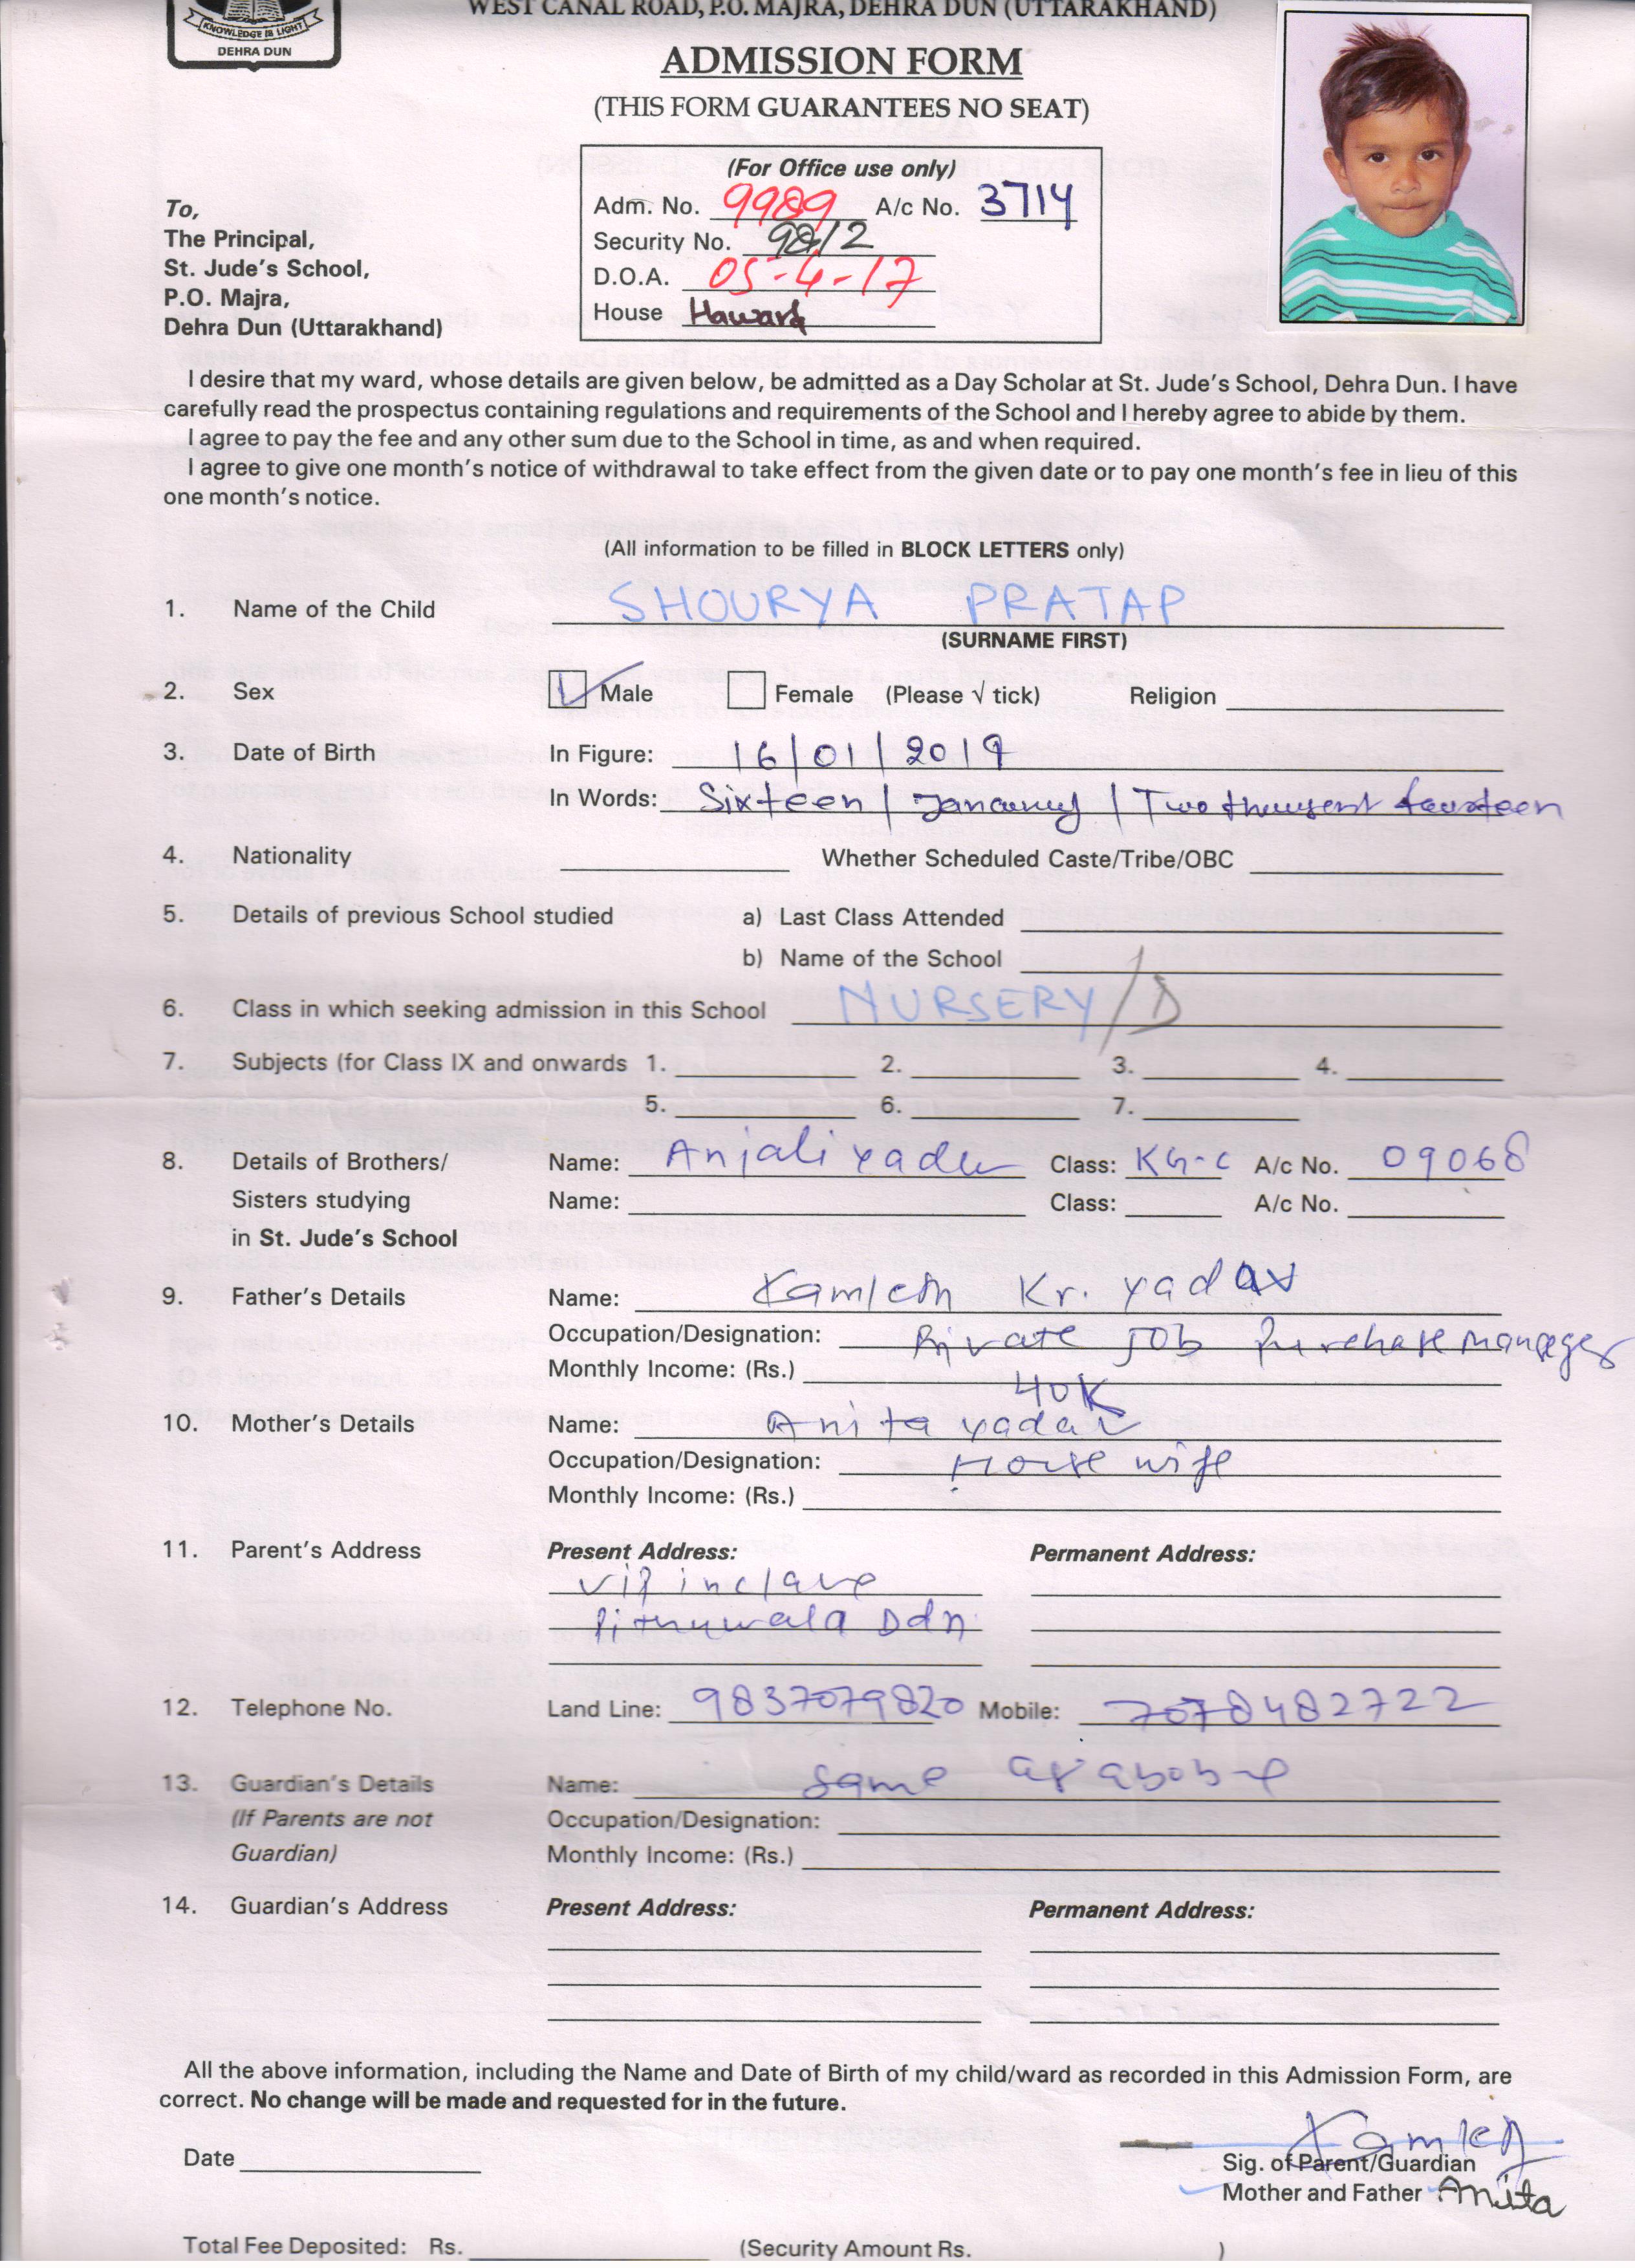 WEST CANAL ROAD, P.O. MAJRA, DEHRA DUN (UTTARAKHAND)
KNOWLEDGE IS LIGHT
DEHRA DUN
ADMISSION FORM
(THIS FORM GUARANTEES NO SEAT)
(For Office use only)
Adm. No. 9989 A/c No. 3714
Security No. 98/2
D.O.A. 05-4-17
House Haward
To,
The Principal,
St. Jude's School,
P.O. Majra,
Dehra Dun (Uttarakhand)
I desire that my ward, whose details are given below, be admitted as a Day Scholar at St. Jude's School, Dehra Dun. I have
carefully read the prospectus containing regulations and requirements of the School and I hereby agree to abide by them.
I agree to pay the fee and any other sum due to the School in time, as and when required.
I agree to give one month's notice of withdrawal to take effect from the given date or to pay one month's fee in lieu of this
one month's notice.
(All information to be filled in BLOCK LETTERS only)
1. Name of the Child SHOURYA PRATAP
(SURNAME FIRST)
2. Sex Male Female (Please √ tick) Religion
3. Date of Birth In Figure: 16/01/2019
In Words: Sixteen / / Two
4. Nationality Whether Scheduled Caste/Tribe/OBC
5. Details of previous School studied a) Last Class Attended
b) Name of the School
6. Class in which seeking admission in this School NURSERY/D
7. Subjects (for Class IX and onwards 1. 2. 3. 4.
5. 6. 7.
8. Details of Brothers/ Name: Anjali Class: KG-C A/c No. 09068
Sisters studying Name: Class: A/c No.
in St. Jude's School
9. Father's Details Name: Kr. yadav
Occupation/Designation: Private JOB
Monthly Income: (Rs.) 40K
10. Mother's Details Name: Anita yadav
Occupation/Designation: House wife
Monthly Income: (Rs.)
11. Parent's Address Present Address: Permanent Address:
vip inclave
Pithuwala Ddn
12. Telephone No. Land Line: 9837079820 Mobile: 7078482722
13. Guardian's Details Name: same as
(If Parents are not Occupation/Designation:
Guardian) Monthly Income: (Rs.)
14. Guardian's Address Present Address: Permanent Address:
All the above information, including the Name and Date of Birth of my child/ward as recorded in this Admission Form, are
correct. No change will be made and requested for in the future.
Date
Sig. of Parent/Guardian
Mother and Father Anita
Total Fee Deposited: Rs. (Security Amount Rs. )